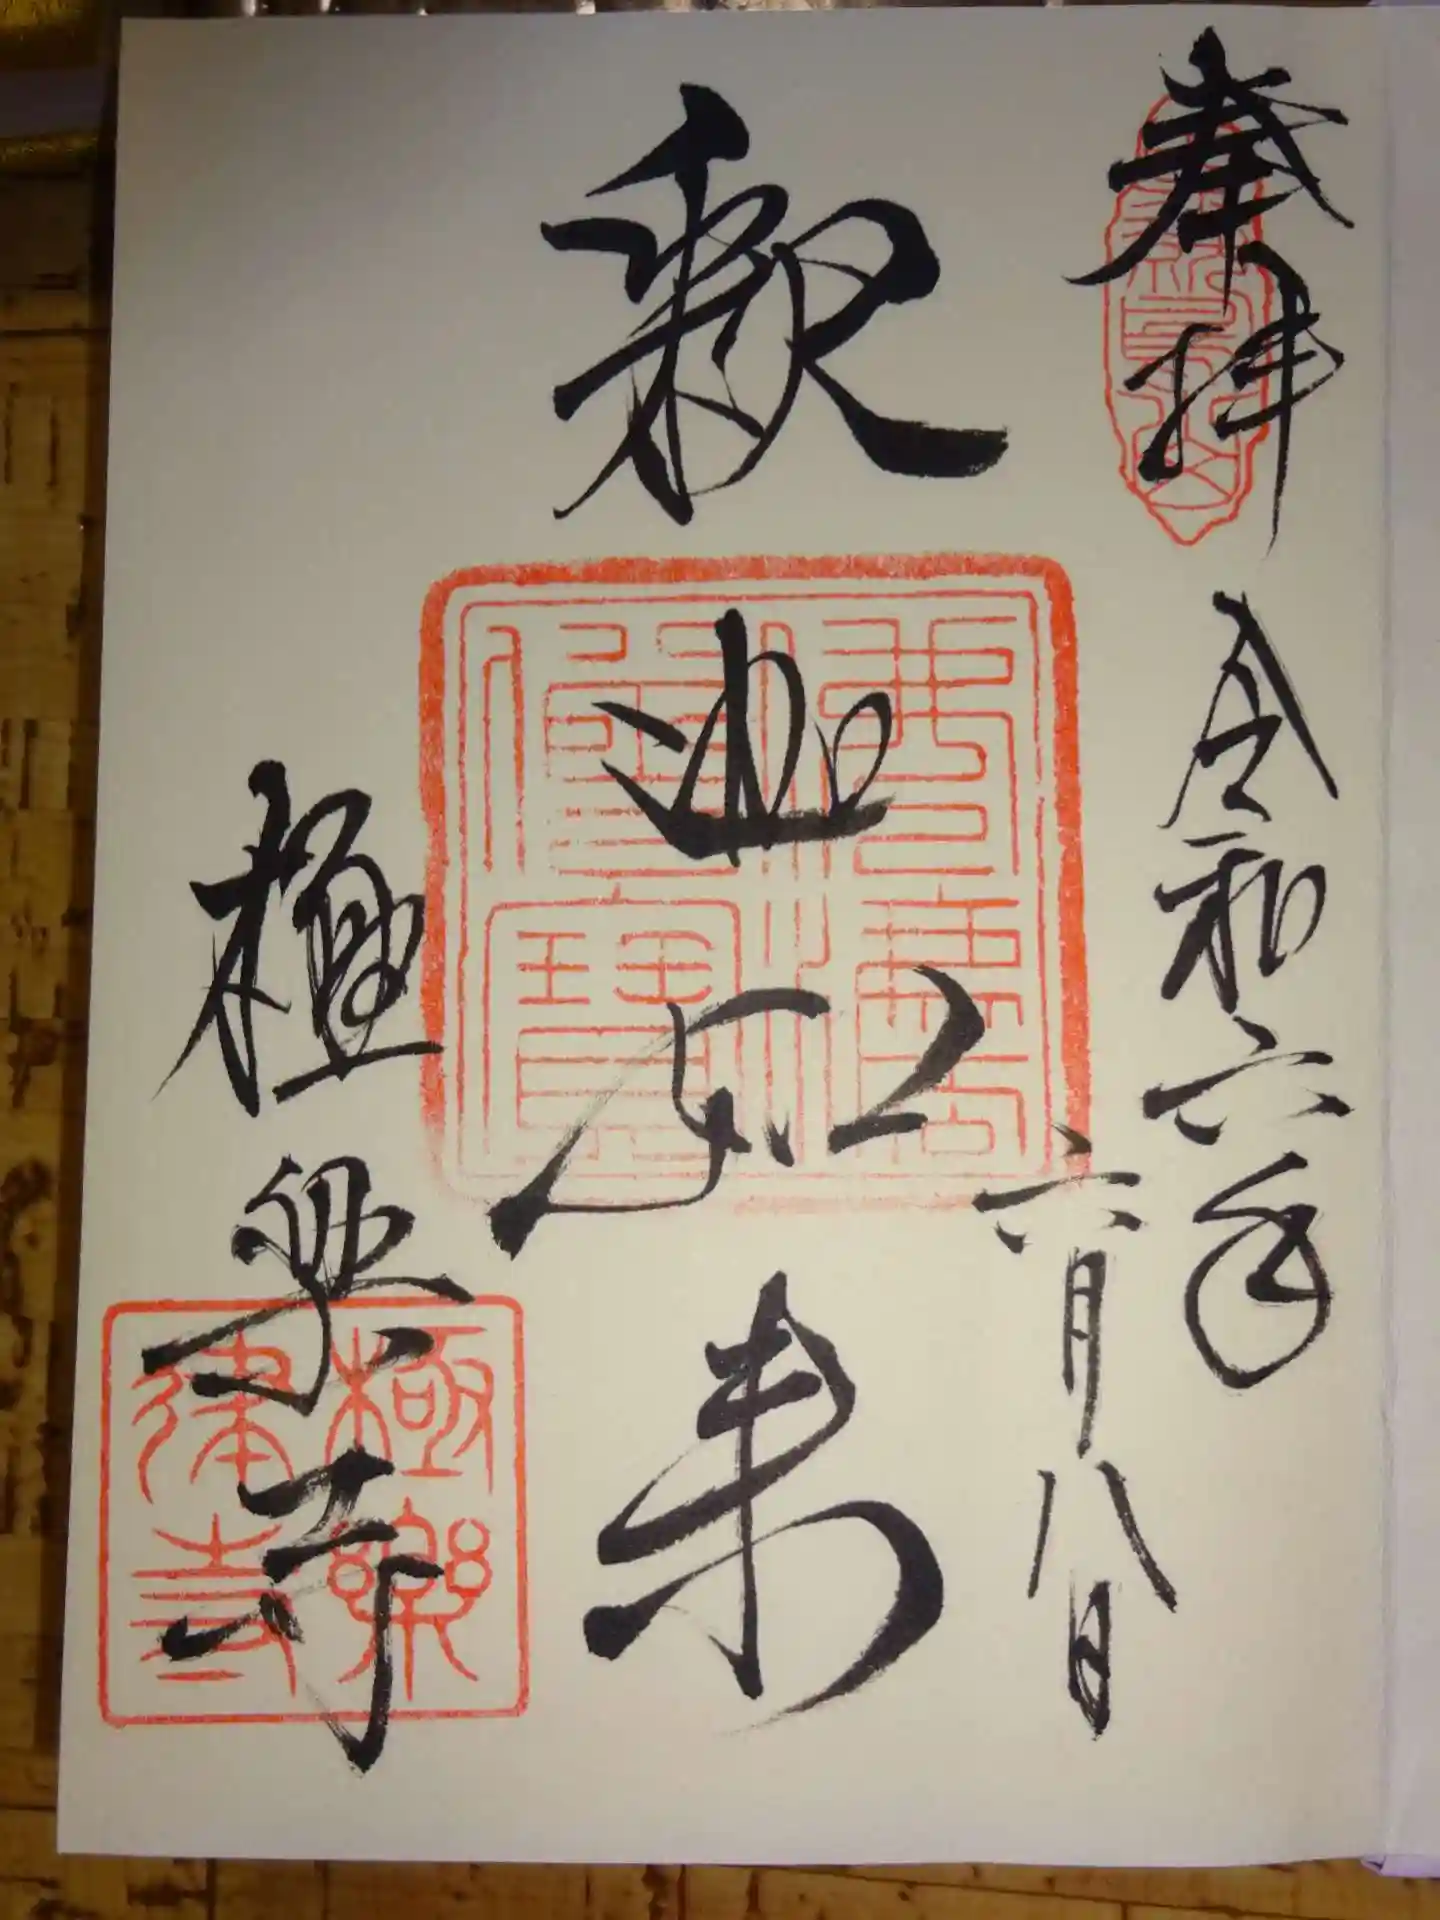 奉拝
令和六年
六月八日
釈迦如来
極楽寺
極楽律寺
佛法僧寳